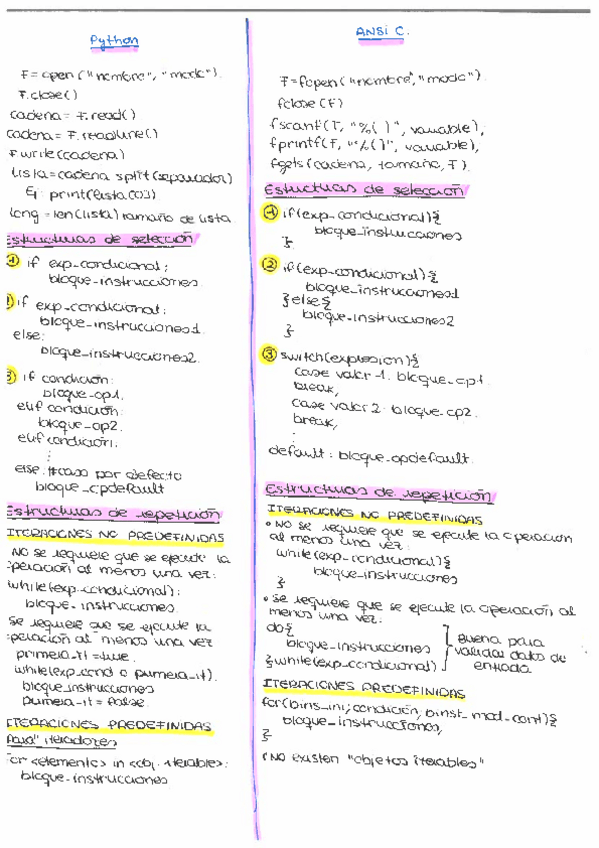 Python
F = open ("nombre", "modo").
F.close()
cadena = F.read()
cadena = F.readline()
F.write(cadena)
lista=cadena.split(separador)
Ej: print(lista[0])
long = len(lista) tamaño de lista
Estructuras de selección
if exp_condicional:
bloque_instrucciones.
if exp_condicional:
bloque_instrucciones1.
else:
bloque_instrucciones2.
3) if condición:
bloque_op1.
elif condición:
bloque_op2.
elif condición:
⋮
else: #caso por defecto
bloque_opdefault
Estructuras de repetición
ITERACIONES NO PREDEFINIDAS
NO se requiere que se ejecute la
operación al menos una vez:
while(exp_condicional):
bloque_instrucciones.
Se requiere que se ejecute la
operación al menos una vez
primera_it=true.
while(exp_cond o primera_it).
bloque_instrucciones
primera_it = false.
ITERACIONES PREDEFINIDAS
"para" iteradores
for <elemento> in <obj. iterable>:
bloque_instrucciones
ANSI C.
F=fopen("nombre","modo")
fclose(F)
fscanf(F, "%( )", variable),
fprintf(F, "%( )", variable),
fgets(cadena, tamaño, F).
Estructuras de selección
1 if(exp_condicional){
bloque_instrucciones
}
2 if(exp_condicional){
bloque_instrucciones1
}else{
bloque_instrucciones2
}
3 switch(expresion){
case valor 1. bloque_op1.
break,
case valor 2. bloque_op2.
break,
default: bloque_opdefault.
Estructuras de repetición
ITERACIONES NO PREDEFINIDAS
• NO se requiere que se ejecute la operación
al menos una vez:
while(exp_condicional){
bloque_instrucciones
}
• Se requiere que se ejecute la operación al
menos una vez:
do{
bloque_instrucciones
}while(exp_condicional)
Buena para
validar dato de
entrada
ITERACIONES PREDEFINIDAS
for(binst_ini; condición; binst_mod_cont){
bloque_instrucciones,
}
No existen "objetos iterables"